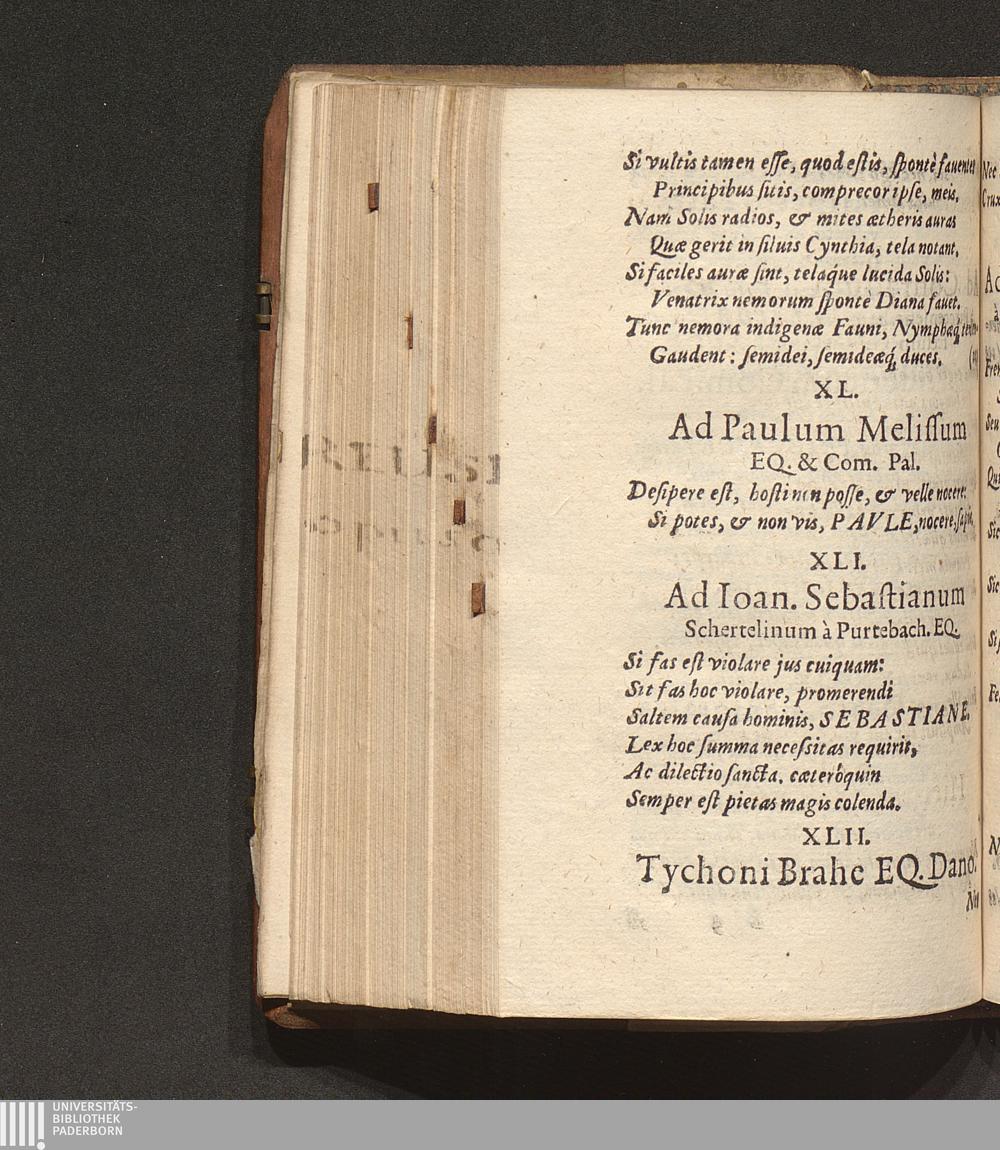 Si vultis tamen eſſe, quod eſtis, ſpontè fauentes
Principibus ſitis, comprecor ipſe, meis.
Nam Solis radios, & mites ætheris auras
Quæ gerit in ſiluis Cynthia, tela notant.
Si faciles auræ ſint, telaq́ue lucida Solis:
Venatrix nemorum ſpontè Diana fauet.
Tunc nemora indigenæ Fauni, Nymphæq́;
Gaudent: ſemidei, ſemideæq́; duces.
XL.
Ad Paulum Meliſſum
EQ. & Com. Pal.
Deſipere eſt, hoſti non poſſe, & velle nocere:
Si potes, & non vis, PAVLE, nocere, ſapis.
XLI.
Ad Ioan. Sebaſtianum
Schertelinum à Purtebach. EQ.
Si fas eſt violare jus cuiquam:
Sit fas hoc violare, promerendi
Saltem cauſa hominis, SEBASTIANE.
Lex hoc ſumma neceſsitas requirit,
Ac dilectio ſancta. cæterôquin
Semper eſt pietas magis colenda.
XLII.
Tychoni Brahe EQ. Dano.
Nec
Crux
UNIVERSITÄTS-
BIBLIOTHEK
PADERBORN